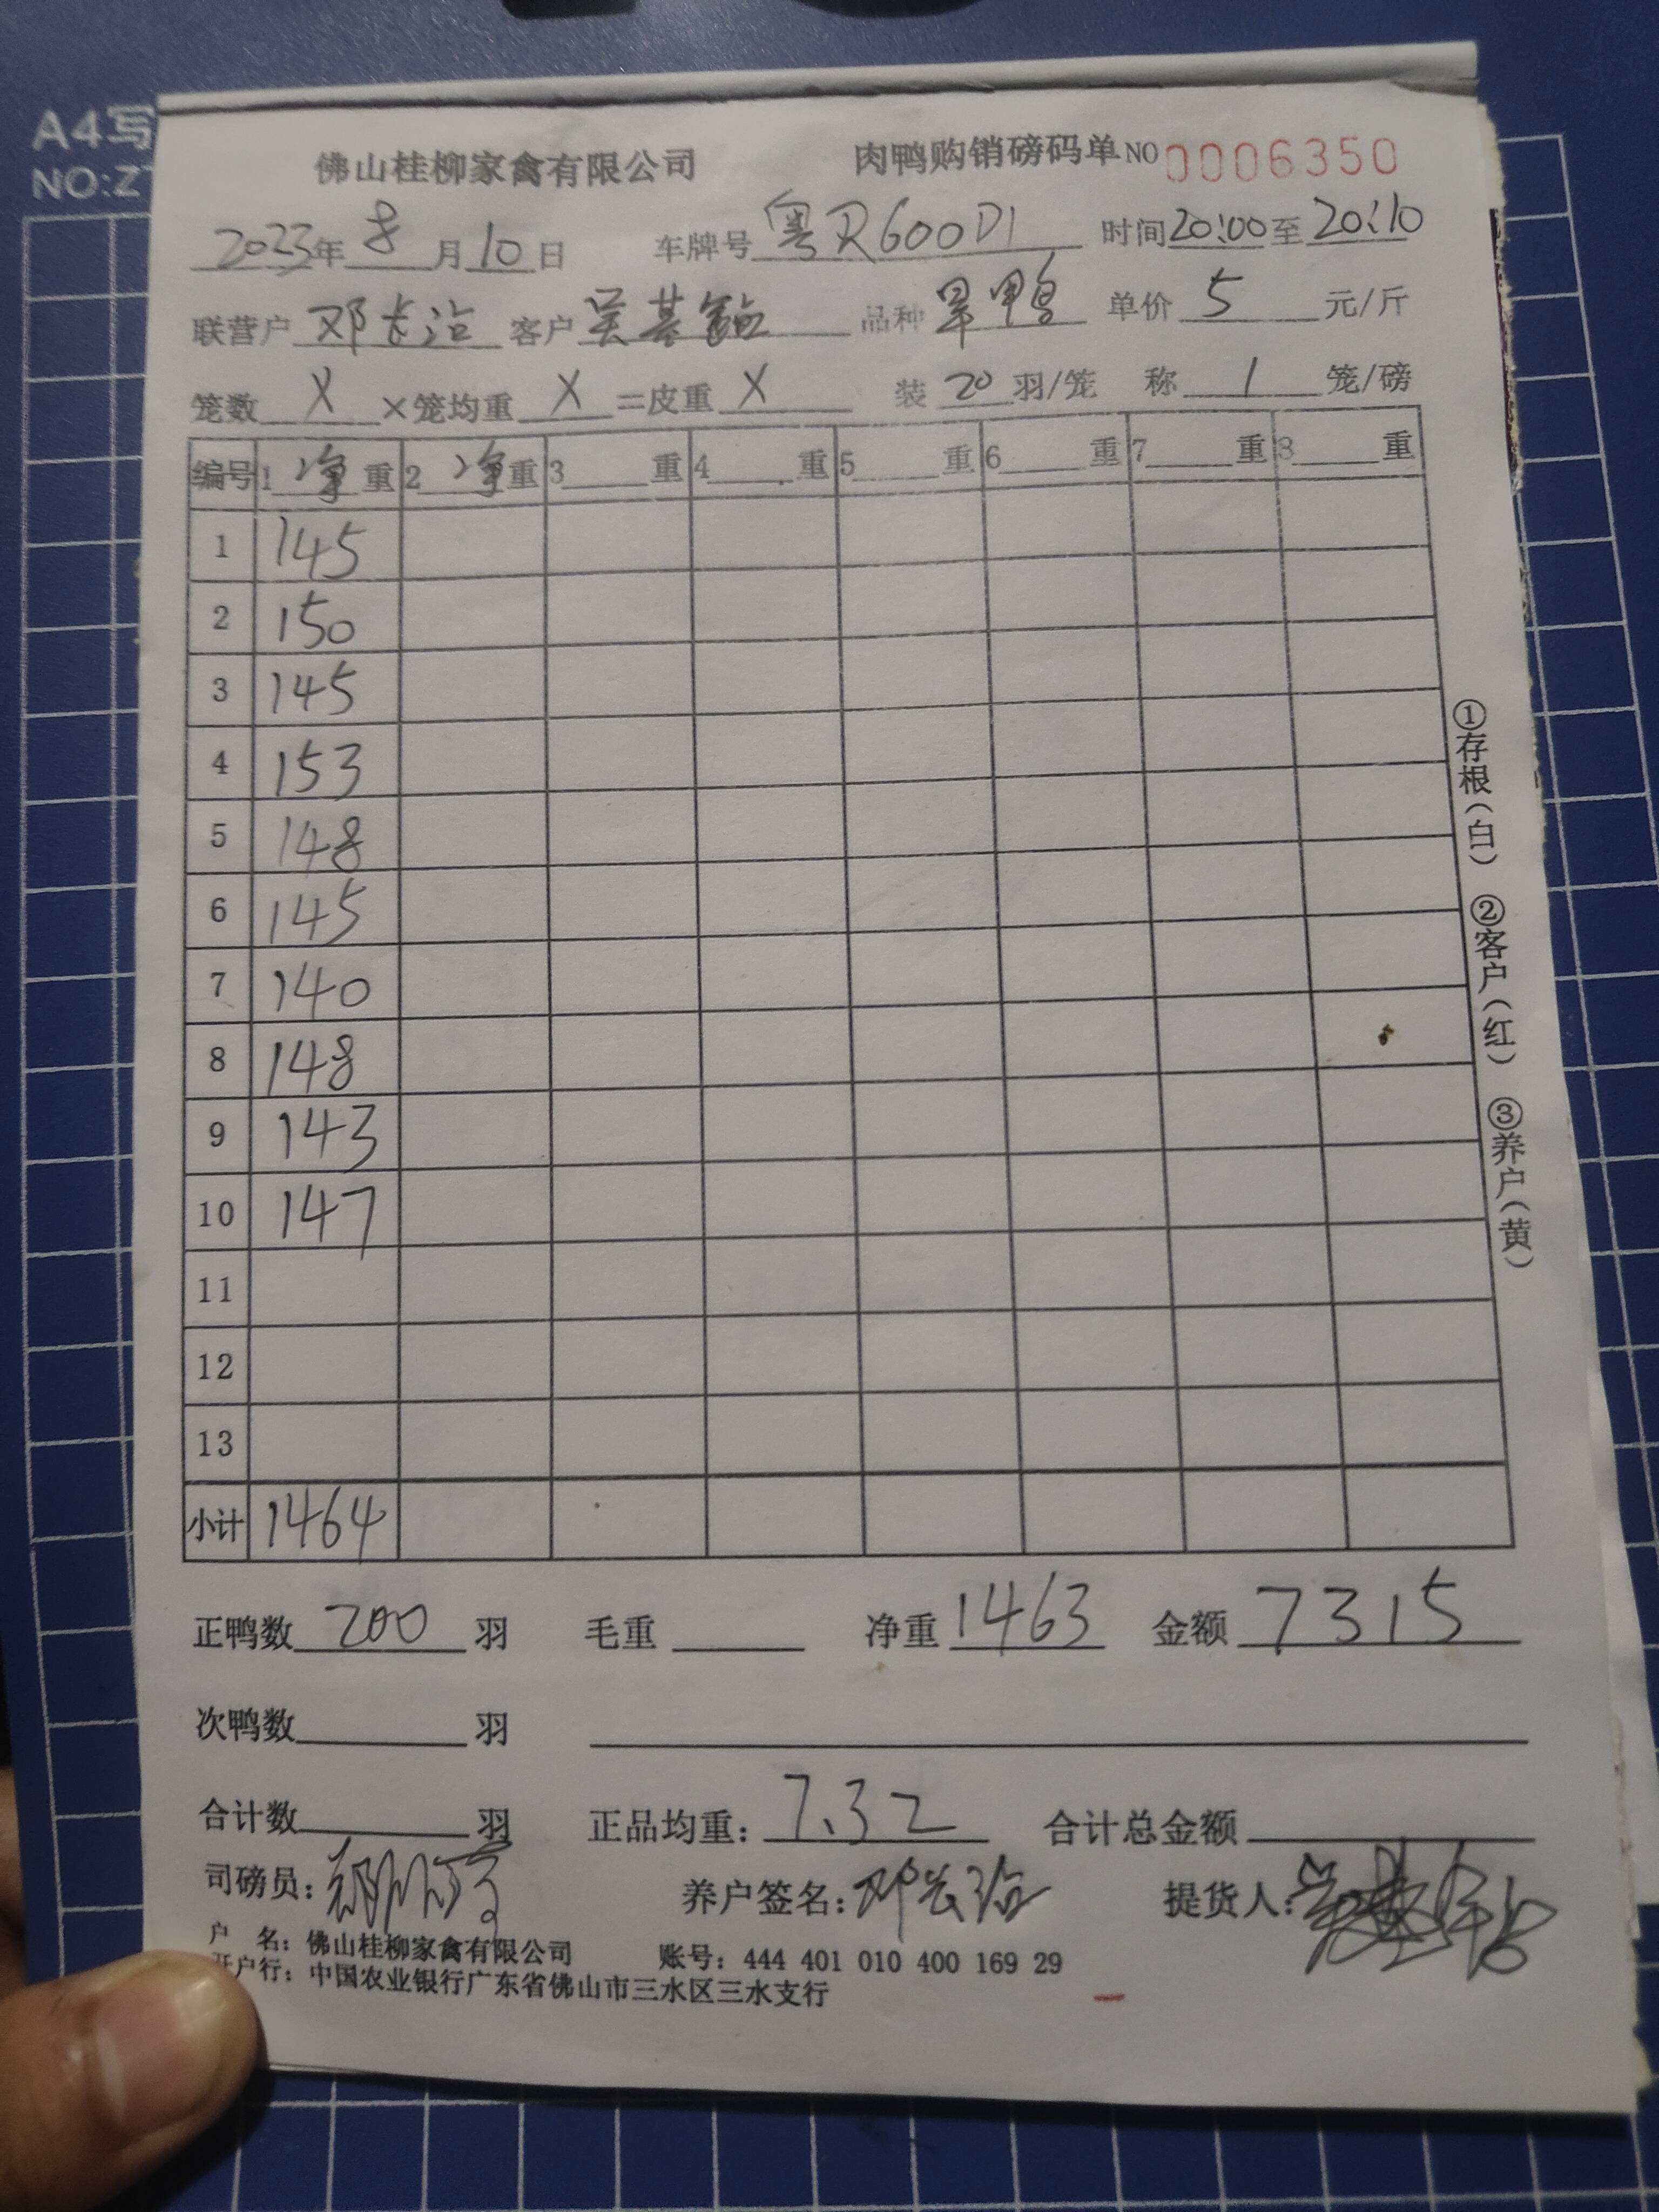 A4写
NO:Z
佛山桂柳家禽有限公司 肉鸭购销磅码单NO 0006350
2023年 8 月 10 日 车牌号 粤R600D1 时间 20:00 至 20:10
联营户 邓长治 客户 吴基 品种 旱鸭 单价 5 元/斤
笼数 X ×笼均重 X =皮重 X 装 20 羽/笼 称 1 笼/磅
编号 1 净 重 2 净 重 3 重 4 重 5 重 6 重 7 重 8 重
1 145
2 150
3 145
4 153
5 148
6 145
7 140
8 148
9 143
10 147
11
12
13
小计 1464
①存根(白) ②客户(红) ③养户(黄)
正鸭数 200 羽 毛重 净重 1463 金额 7315
次鸭数 羽
合计数 羽 正品均重: 7.32 合计总金额
司磅员: 养户签名: 邓长治 提货人:
户 名: 佛山桂柳家禽有限公司 账号: 444 401 010 400 169 29
开户行: 中国农业银行广东省佛山市三水区三水支行